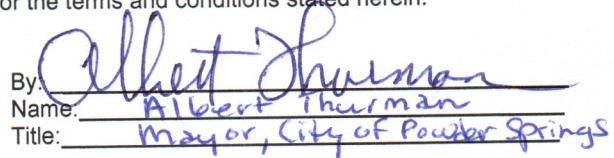 or the terms and conditions stated herein.
By: Albert Thurman
Name: Albert Thurman
Title: Mayor, City of Powder Springs